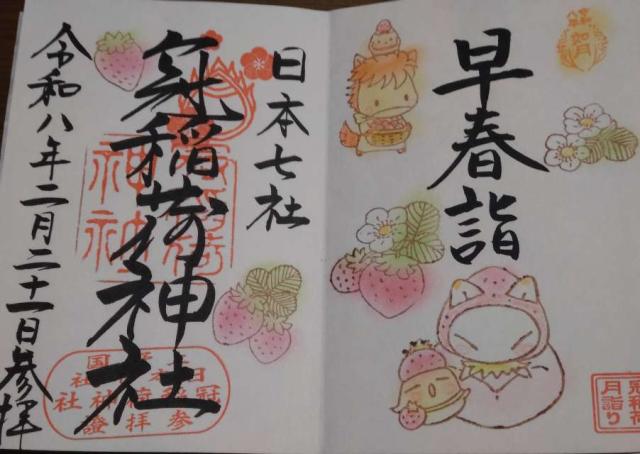 如月
早春詣
冠稲荷
月詣り
日本七社
冠稲荷神社
令和八年二月二十一日参拝